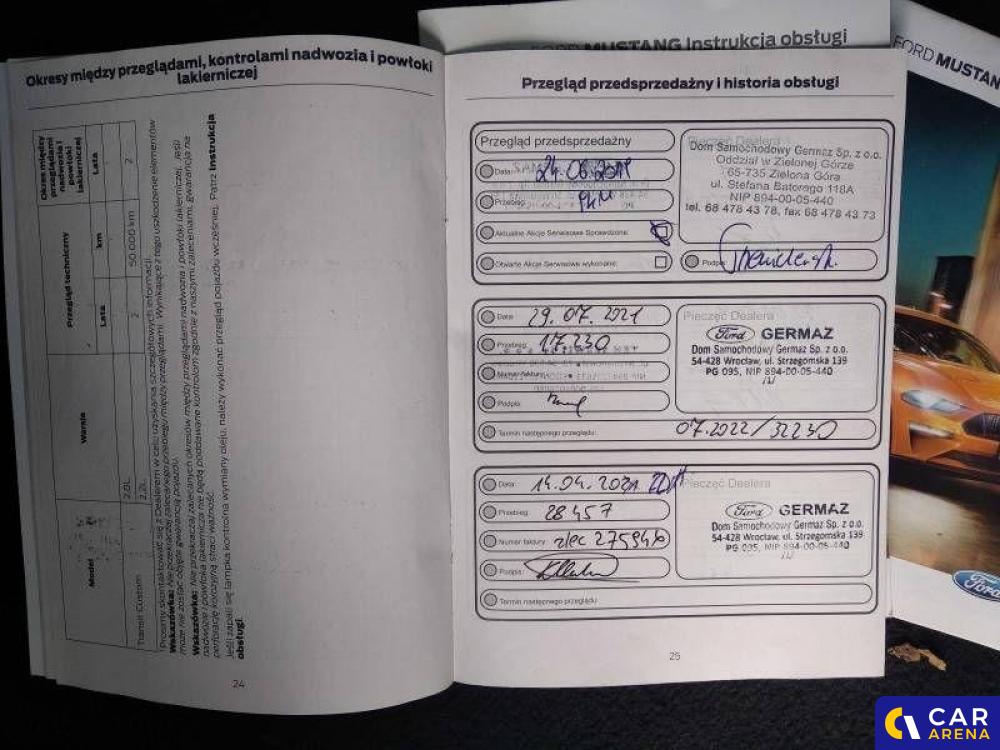 FORD MUSTANG Instrukcja obsługi
FORD MUSTANG
Okresy między przeglądami, kontrolami nadwozia i powłoki
lakierniczej
Okres między
przeglądami
nadwozia i
powłoki
lakierniczej
Lata
2
Przegląd techniczny
km
50 000 km
Lata
2
Wersja
2,0L
2,2L
Model
Transit Custom
Prosimy skontaktować się z Dealerem w celu uzyskania szczegółowych informacji.
Wskazówka: Nie przekraczaj zalecanego przebiegu między przeglądami. Wynikające z tego uszkodzenie elementów
może nie zostać objęte gwarancją pojazdu.
Wskazówka: Nie przekraczaj zalecanych okresów między przeglądami nadwozia i powłoki lakierniczej. Jeśli
nadwozie i powłoka lakiernicza nie będą poddawane kontroli zgodnie z naszymi zaleceniami, gwarancja na
perforację korozyjną straci ważność.
Jeśli zapali się lampka kontrolna wymiany oleju, należy wykonać przegląd pojazdu wcześniej. Patrz Instrukcja
obsługi
24
Przegląd przedsprzedażny i historia obsługi
Przegląd przedsprzedażny
Data:
Przebieg: 9km
Aktualne Akcje Serwisowe Sprawdzone:
Otwarte Akcje Serwisowe wykonane:
Pieczęć Dealera
Dom Samochodowy Germaz Sp. z o.o.
Oddział w Zielonej Górze
65-735 Zielona Góra
ul. Stefana Batorego 118A
NIP 894-00-05-440
tel. 68 478 43 78, fax 68 478 43 73
Podpis:
Data: 29.07.2021
Przebieg: 17230
Numer faktury:
Podpis:
Termin następnego przeglądu: 07.2022/32230
Pieczęć Dealera
Ford GERMAZ
Dom Samochodowy Germaz Sp. z o.o.
54-428 Wrocław, ul. Strzegomska 139
PG 095, NIP 894-00-05-440
/1/
Data: 14.04.
Przebieg: 28457
Numer faktury: zlec 275946
Podpis:
Termin następnego przeglądu
Pieczęć Dealera
Ford GERMAZ
Dom Samochodowy Germaz Sp. z o.o.
54-428 Wrocław, ul. Strzegomska 139
PG 095, NIP 894-00-05-440
25
Ford
CAR
ARENA